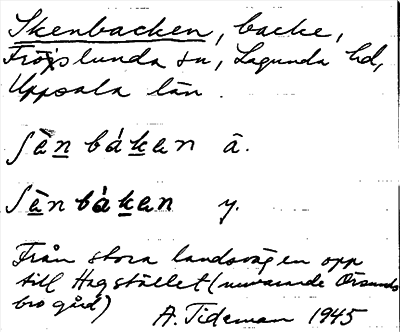 Skenbacken, backe,
Fröslunda sn, Lagunda hd,
Uppsala län.
ʃènbáken ä.
ʃènbáken y.
Från stora landsvägen opp
till Hagstället (nuvarande Örsunds
bro gård)
A. Tideman 1945